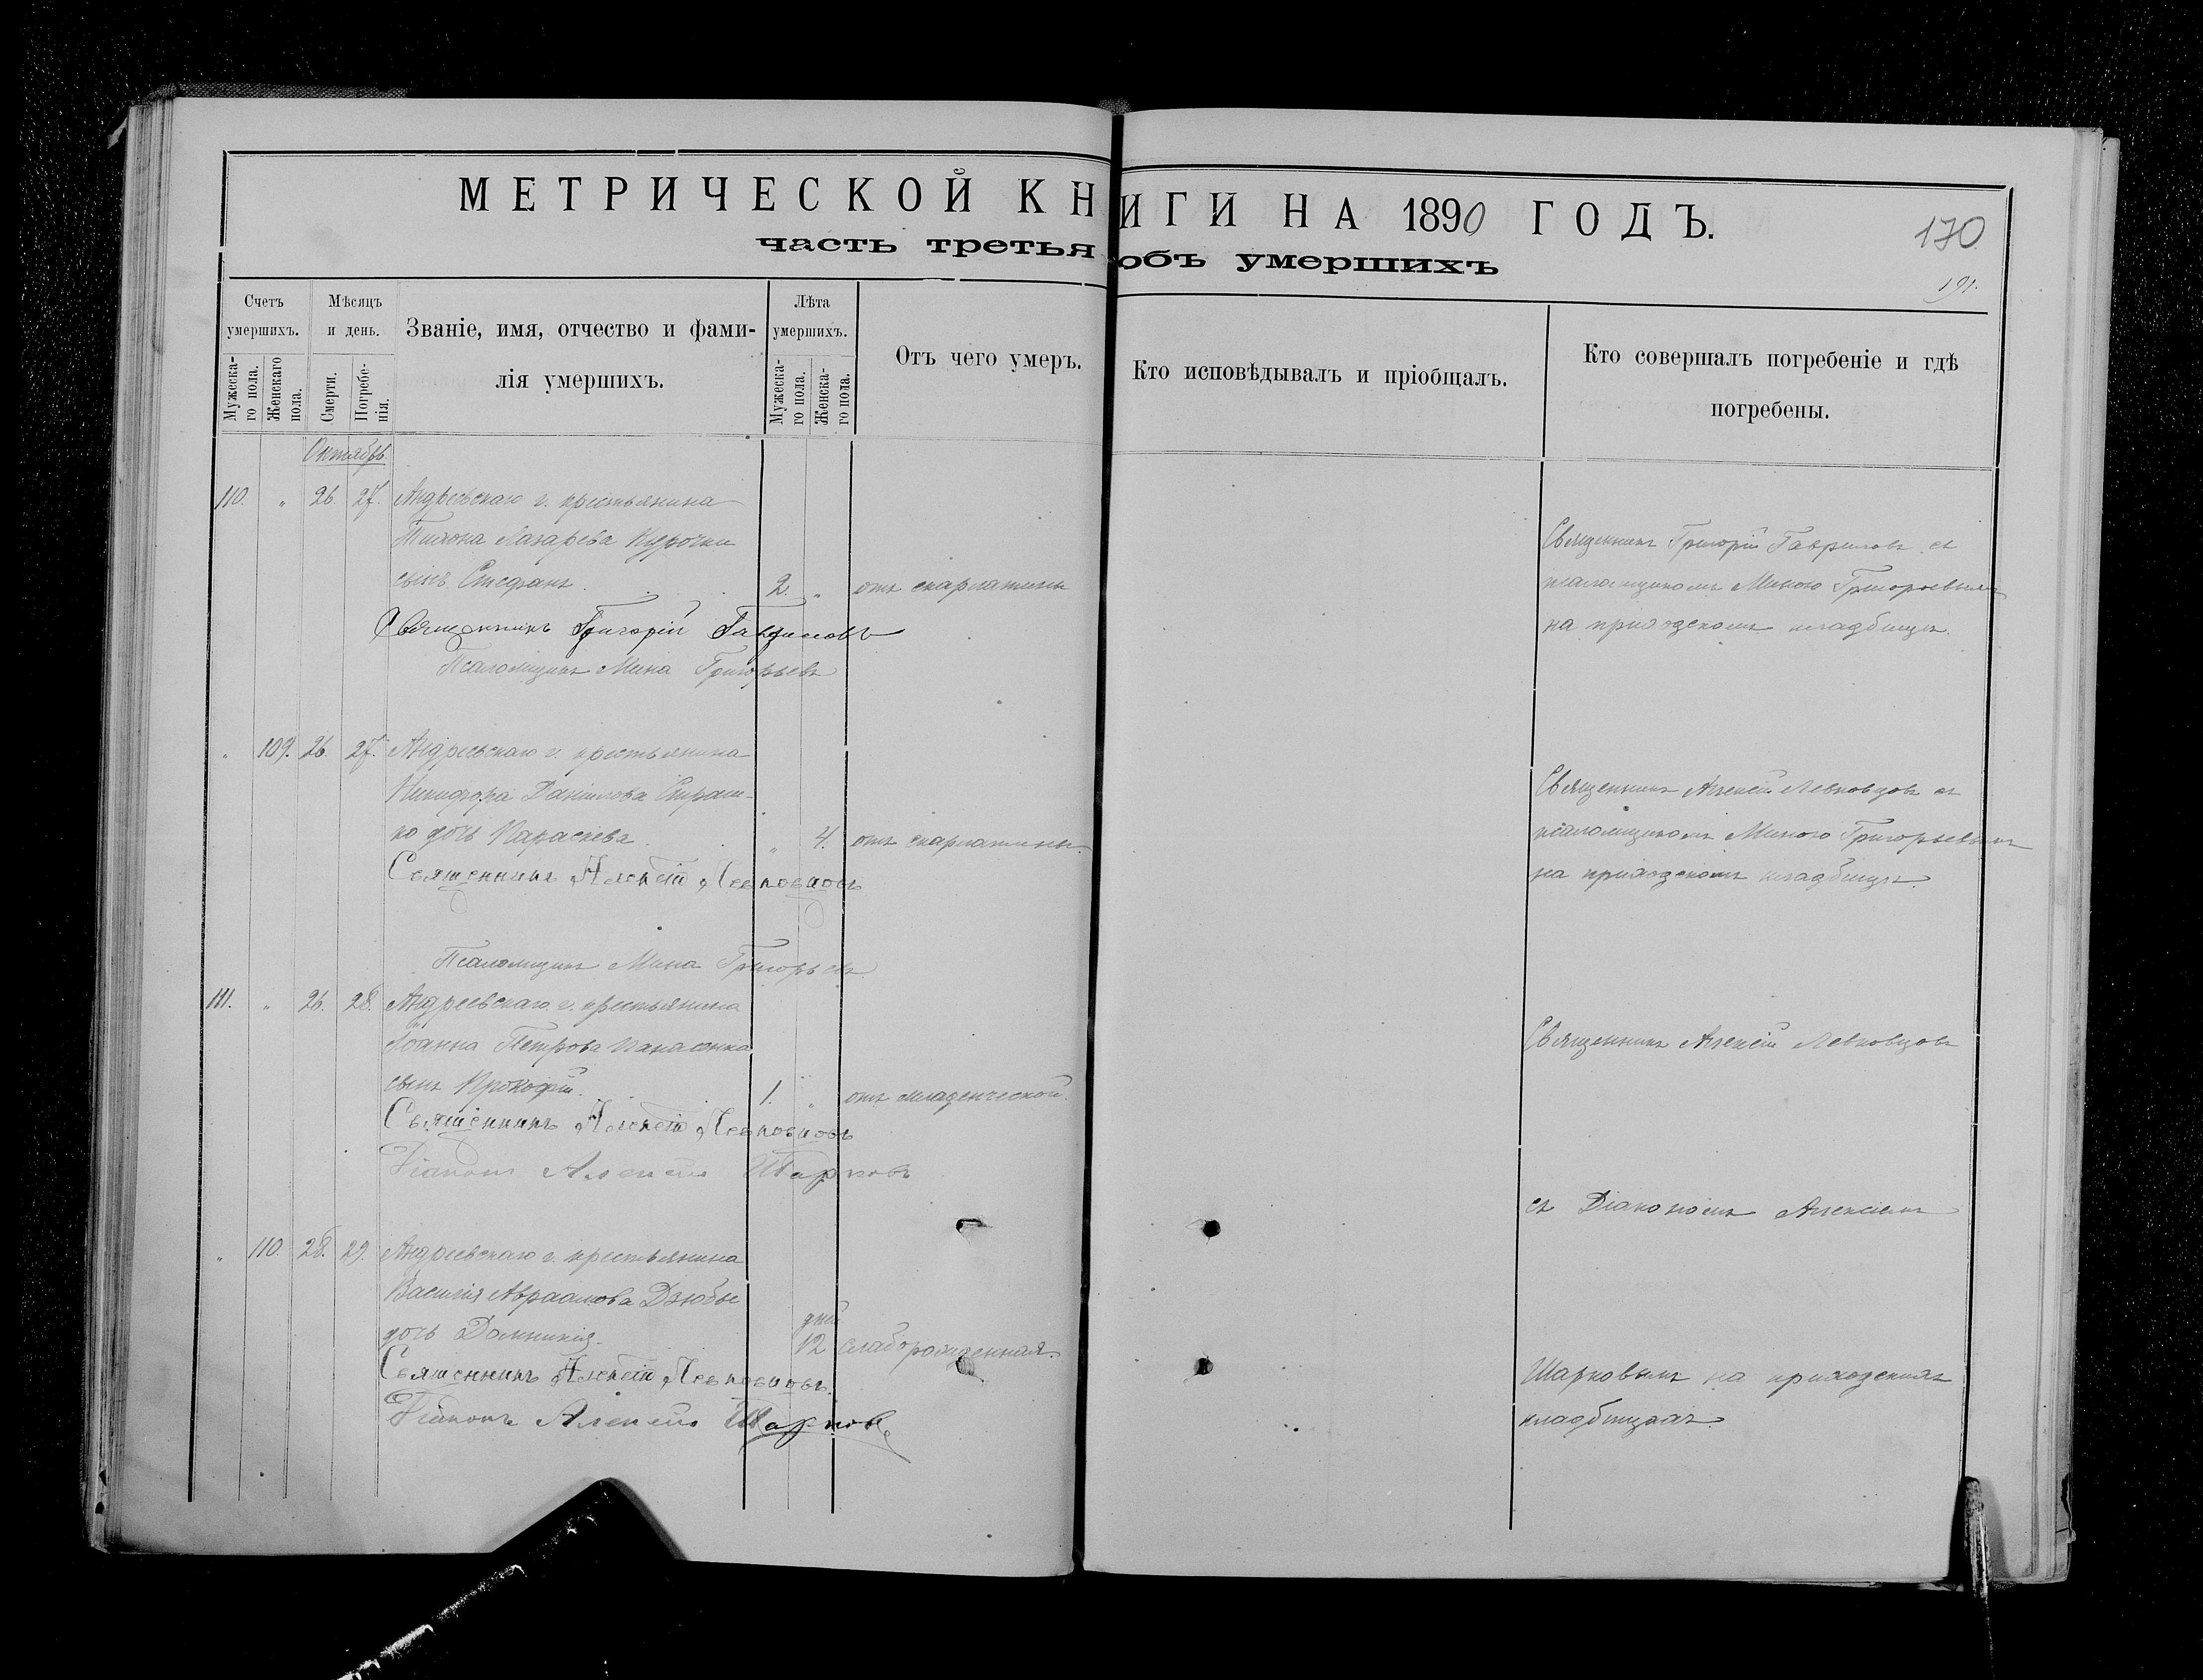 МЕТРИЧЕСКОЙ КНИГИ НА 1890 ГОДЪ.
170
часть третья объ умершихъ
191.
Счетъ умершихъ.
Мужеска-го пола.
Женскаго пола.
Мѣсяцъ и день.
Смерти.
Погребе-нія.
Званіе, имя, отчество и фами-
лія умершихъ.
Лѣта умершихъ.
Мужеска-го пола.
Женска-го пола.
Отъ чего умеръ.
Кто исповѣдывалъ и пріобщалъ.
Кто совершалъ погребеніе и гдѣ
погребены.
Октябрь
110. " 26. 27. Андреевскаго г. крестьянина
Тихона Лазарева Курочки
сынъ Стефанъ. 2. " отъ скарлатины
Священникъ Григорій Гавриловъ съ
псаломщикомъ Миною Григорьевымъ
на приходскомъ кладбищѣ.
Священникъ Григорій Гавриловъ
Псаломщикъ Мина Григорьевъ
" 109. 26. 27. Андреевскаго г. крестьянина
Никифора Даніилова Страш-
ко дочь Параскева. " 4. отъ скарлатины.
Священникъ Алексій Левковцовъ съ
псаломщикомъ Миною Григорьевымъ
на приходскомъ кладбищѣ.
Священникъ Алексій Левковцовъ
Псаломщикъ Мина Григорьевъ
111. " 26. 28. Андреевскаго г. крестьянина
Іоанна Петрова Панасенка
сынъ Прокофій. 1. " отъ младенческой.
Священникъ Алексій Левковцовъ
Священникъ Алексій Левковцовъ
Діаконъ Алексій Шарковъ
съ Діакономъ Алексіемъ
" 110. 28. 29. Андреевскаго г. крестьянина
Василія Авраамова Дзюбы
дочь Домникія. дней 12 слаборожденная.
Священникъ Алексій Левковцовъ.
Діаконъ Алексій Шарковъ
Шарковымъ на приходскихъ
кладбищахъ.